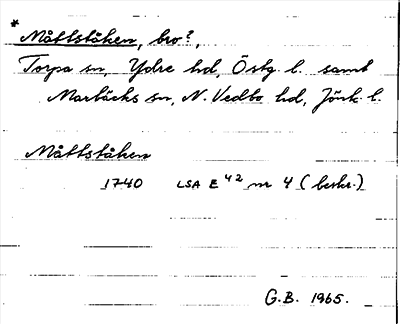 *
Måttståken, bro?,
Torpa sn, Ydre hd, Östg. l. samt
Marbäcks sn, N. Vedbo hd, Jönk. l.
Måttståken
1740 LSA E 42 nr 4 (beskr.)
G.B. 1965.